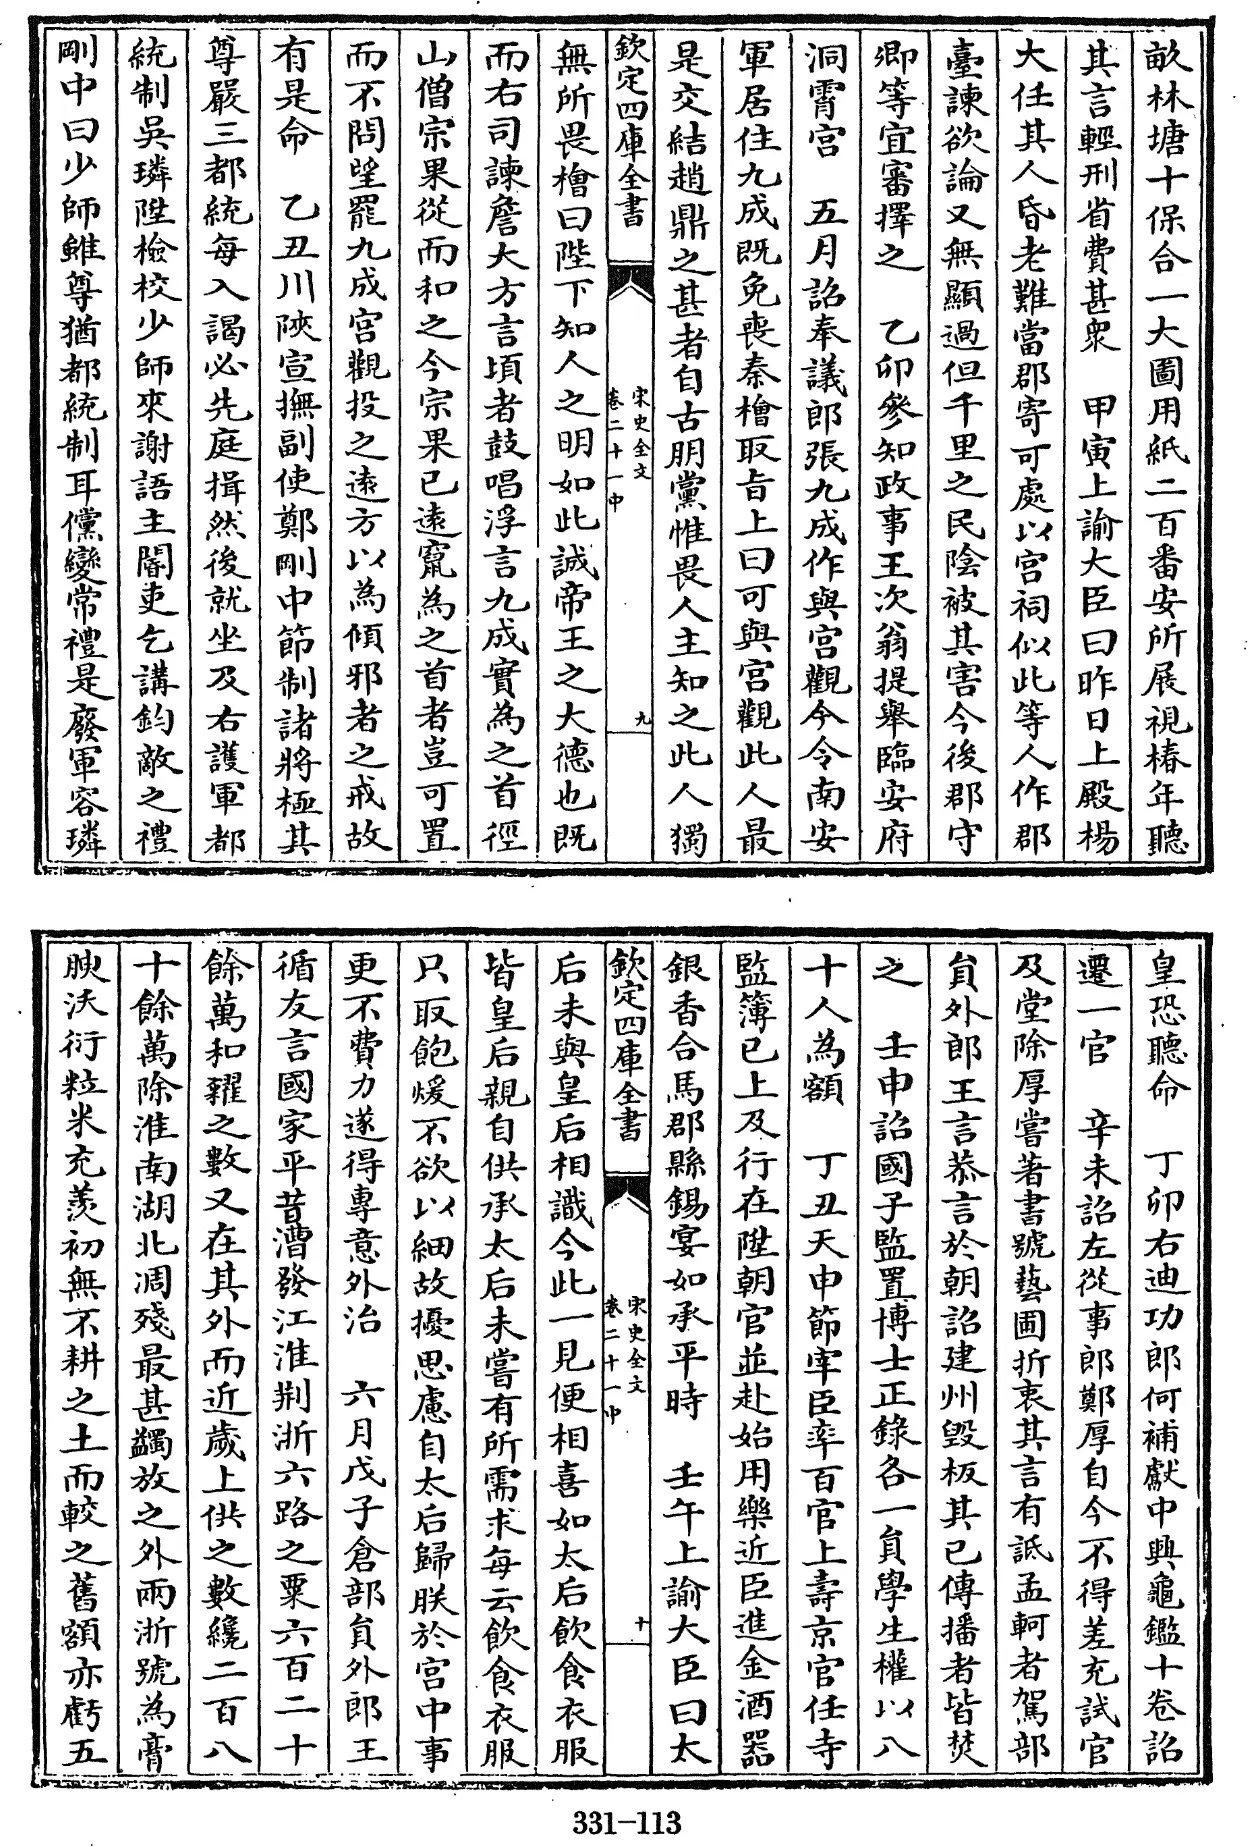 畝林塘十保合一大圖用紙二百番安所展視椿年聽
其言輕刑省費甚衆　甲寅上諭大臣曰昨日上殿楊
大任其人昏老難當郡寄可處以宫祠似此等人作郡
臺諫欲論又無顯過但千里之民陰被其害今後郡守
卿等宜審擇之　乙卯參知政事王次翁提舉臨安府
洞霄宫　五月詔奉議郎張九成作與宫觀今令南安
軍居住九成既免喪秦檜取旨上曰可與宫觀此人最
是交結趙鼎之甚者自古朋黨惟畏人主知之此人獨
欽定四庫全書
宋史全文
卷二十一中
九
無所畏檜曰陛下知人之明如此誠帝王之大德也既
而右司諫詹大方言頃者鼓唱浮言九成實為之首徑
山僧宗果從而和之今宗果已遠竄為之首者豈可置
而不問望罷九成宫觀投之遠方以為傾邪者之戒故
有是命　乙丑川陜宣撫副使鄭剛中節制諸將極其
尊嚴三都統每入謁必先庭揖然後就坐及右護軍都
統制吳璘陞檢校少師來謝語主閽吏乞講鈞敵之禮
剛中曰少師雖尊猶都統制耳儻變常禮是廢軍容璘
皇恐聽命　丁卯右迪功郎何補獻中興龜鑑十卷詔
遷一官　辛未詔左從事郎鄭厚自今不得差充試官
及堂除厚嘗著書號藝圃折衷其言有詆孟軻者駕部
員外郎王言恭言於朝詔建州毁板其已傳播者皆焚
之　壬申詔國子監置博士正錄各一員學生權以八
十人為額　丁丑天申節宰臣率百官上壽京官任寺
監簿已上及行在陞朝官並赴始用樂近臣進金酒器
銀香合馬郡縣錫宴如承平時　壬午上諭大臣曰太
欽定四庫全書
宋史全文
卷二十一中
十
后未與皇后相識今此一見便相喜如太后飲食衣服
皆皇后親自供承太后未嘗有所需求每云飲食衣服
只取飽煖不欲以細故擾思慮自太后歸朕於宫中事
更不費力遂得專意外治　六月戊子倉部員外郎王
循友言國家平昔漕發江淮荆浙六路之粟六百二十
餘萬和糴之數又在其外而近歲上供之數纔二百八
十餘萬除淮南湖北凋殘最甚蠲放之外兩浙號為膏
腴沃衍粒米充羨初無不耕之土而較之舊額亦虧五
331-113